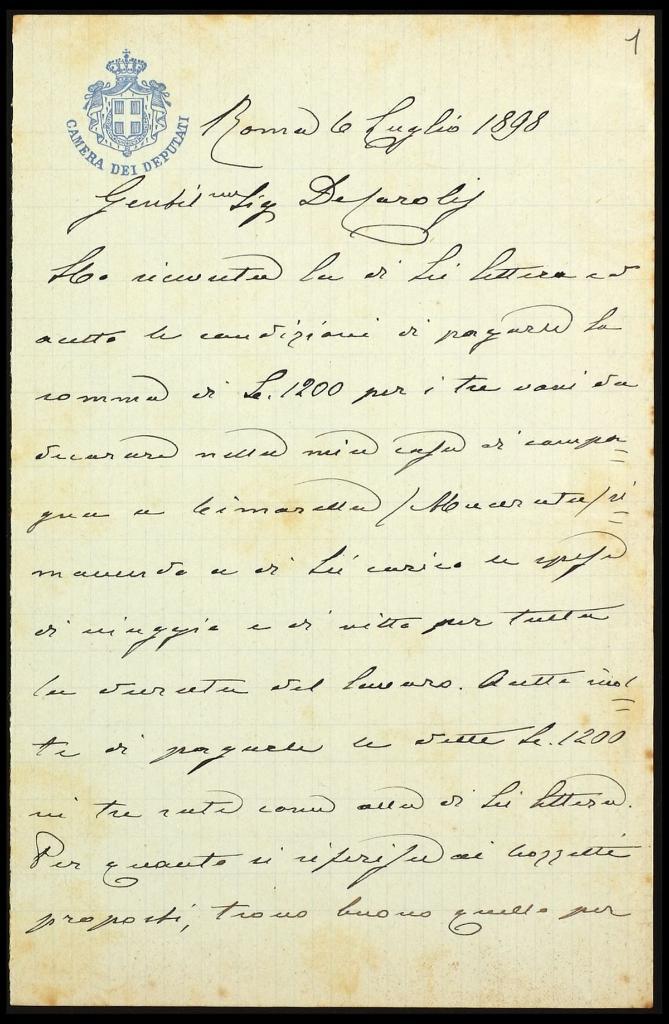 1
CAMERA DEI DEPUTATI
Roma 6 Luglio 1898
Gentil.mo Sig. De Carolis
Ho ricevuta la di Lei lettera ed
accetto le condizioni di pagarle la
somma di Le. 1200 per i tre vani da
decorare nella mia casa di campa=
gna a Cimarella (Macerata) ri=
manendo a di Lei carico le spese
di viaggio e di vitto per tutta
la durata del lavoro. Accetto inol=
te di pagarle le dette Le. 1200
in tre rate come alla di Lei lettera.
Per quanto si riferisce ai bozzetti
proposti, trovo buono quello per